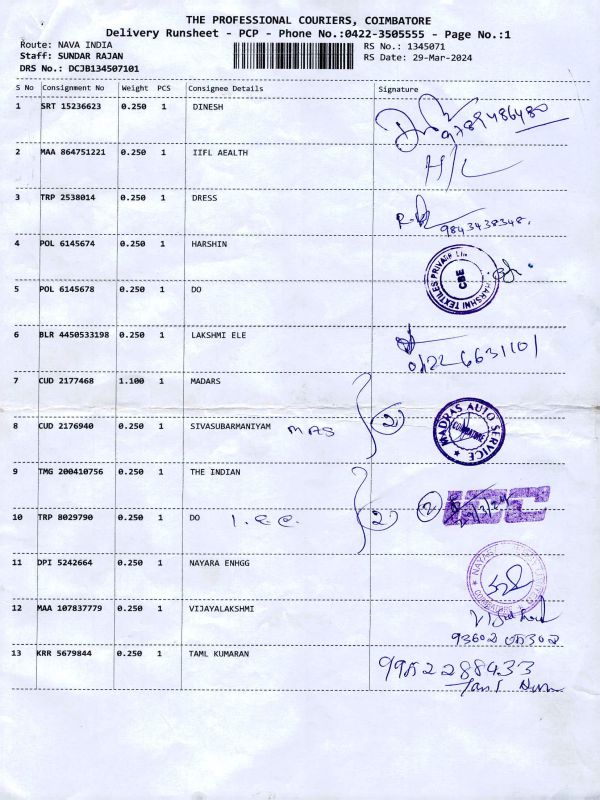 THE PROFESSIONAL COURIERS, COIMBATORE
Delivery Runsheet - PCP - Phone No.:0422-3505555 - Page No.:1
Route: NAVA INDIA
RS No.: 1345071
Staff: SUNDAR RAJAN
RS Date: 29-Mar-2024
DRS No.: DCJB134507101
S No Consignment No Weight PCS Consignee Details Signature
1 SRT 15236623 0.250 1 DINESH
9789486480
2 MAA 864751221 0.250 1 IIFL AEALTH H/L
3 TRP 2538014 0.250 1 DRESS
9843438348.
4 POL 6145674 0.250 1 HARSHIN
HARSHNI TEXTILES PRIVATE
CBE
5 POL 6145678 0.250 1 DO
6 BLR 4450533198 0.250 1 LAKSHMI ELE
0422 6631101
7 CUD 2177468 1.100 1 MADARS
8 CUD 2176940 0.250 1 SIVASUBARMANIYAM MAS 2
MADRAS AUTO SERVICE
COIMBATORE
9 TMG 200410756 0.250 1 THE INDIAN
10 TRP 8029790 0.250 1 DO I.E.C. 2 2 IEC
11 DPI 5242664 0.250 1 NAYARA ENHGG
12 MAA 107837779 0.250 1 VIJAYALAKSHMI
93602
13 KRR 5679844 0.250 1 TAML KUMARAN